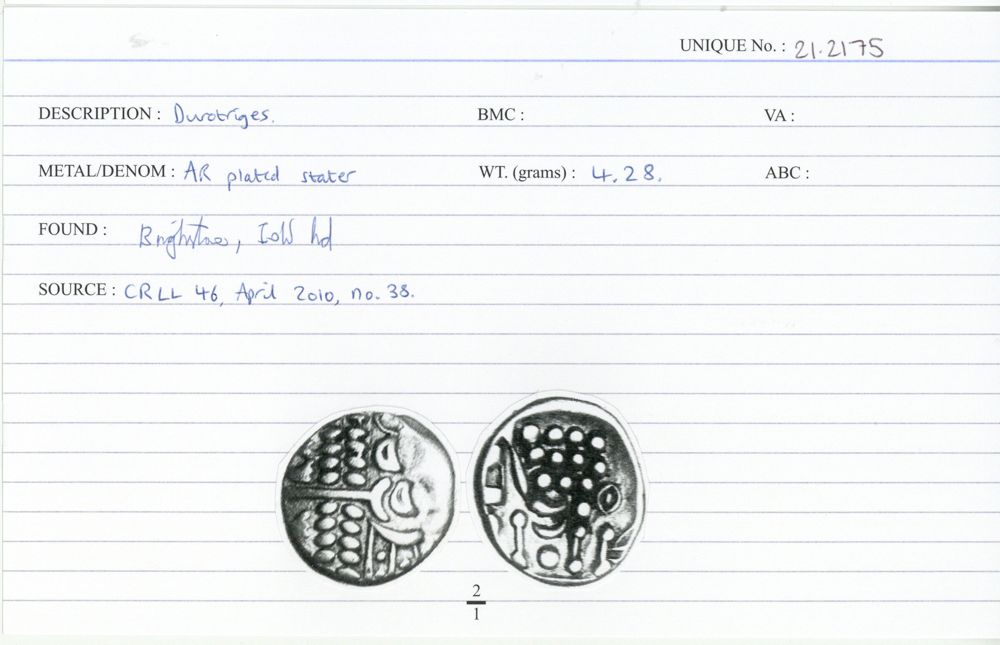 UNIQUE No. : 21.2175
DESCRIPTION : Durotriges. BMC : VA :
METAL/DENOM : AR plated stater WT. (grams) : 4.28. ABC :
FOUND : Brighstone, IoW hd
SOURCE : CRLL 46, April 2010, no. 38.
2
1